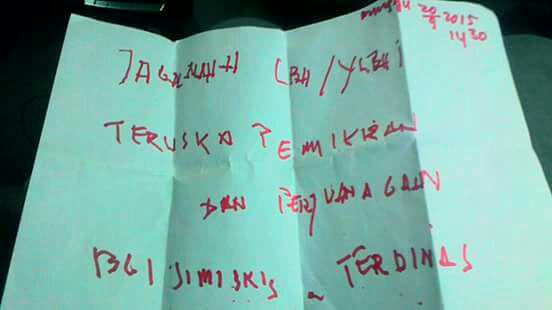 minggu 20/9 2015
1430
JAGALAH LBH/YLBHI
TERUSKA PEMIKIRAN
DAN PERJUANAGAN
BGI SIMISKIS TERDINAS